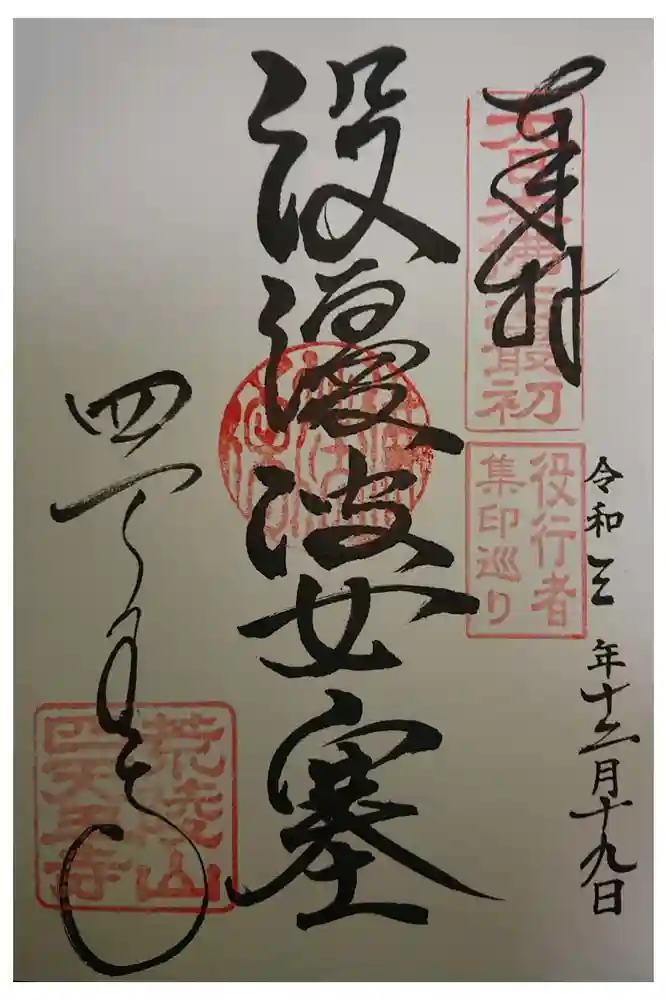 奉拝
大日本佛法最初
役行者
集印巡り
令和三年十二月十九日
役優婆塞
四天王寺
荒陵山
四天王寺